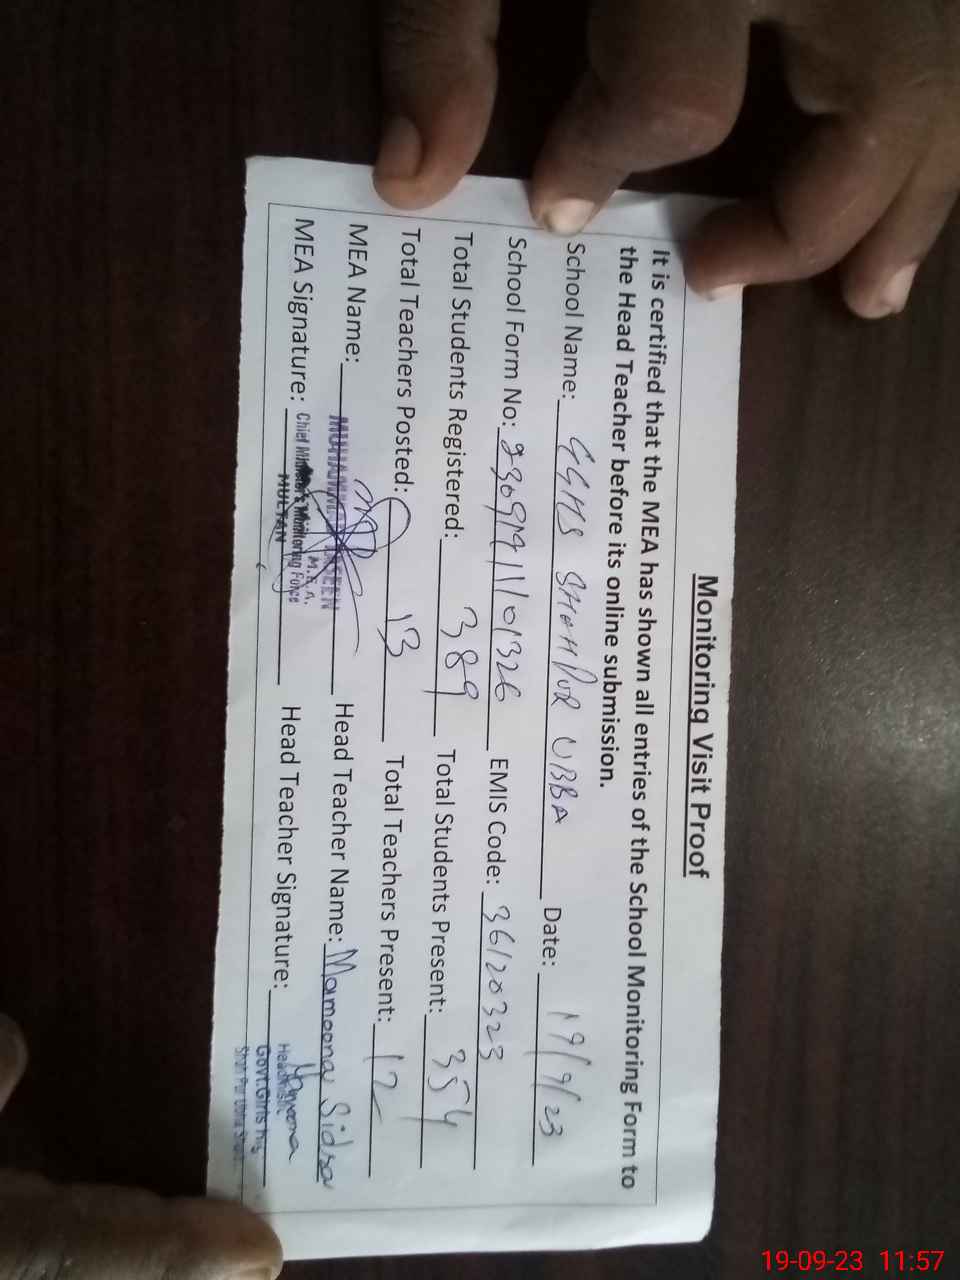 Monitoring Visit Proof
It is certified that the MEA has shown all entries of the School Monitoring Form to
the Head Teacher before its online submission.
School Name: GGHS SHAHPUR UBBA Date: 19/9/23
School Form No: 2309191101326 EMIS Code: 36120323
Total Students Registered: 389 Total Students Present: 354
Total Teachers Posted: 13 Total Teachers Present: 12
MEA Name: Head Teacher Name: Mamoona Sidra
M.E.A.
MEA Signature: Chief Minister's Monitoring Force Head Teacher Signature: Mamoona
MULTAN
Govt.Girls
19-09-23 11:57